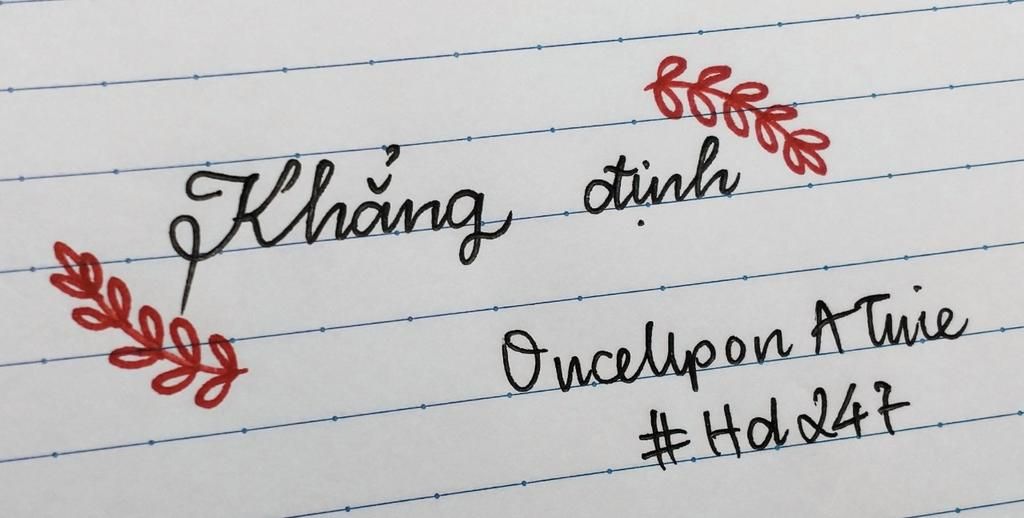 Khẳng định
OnceUpon A Time
#Hd247